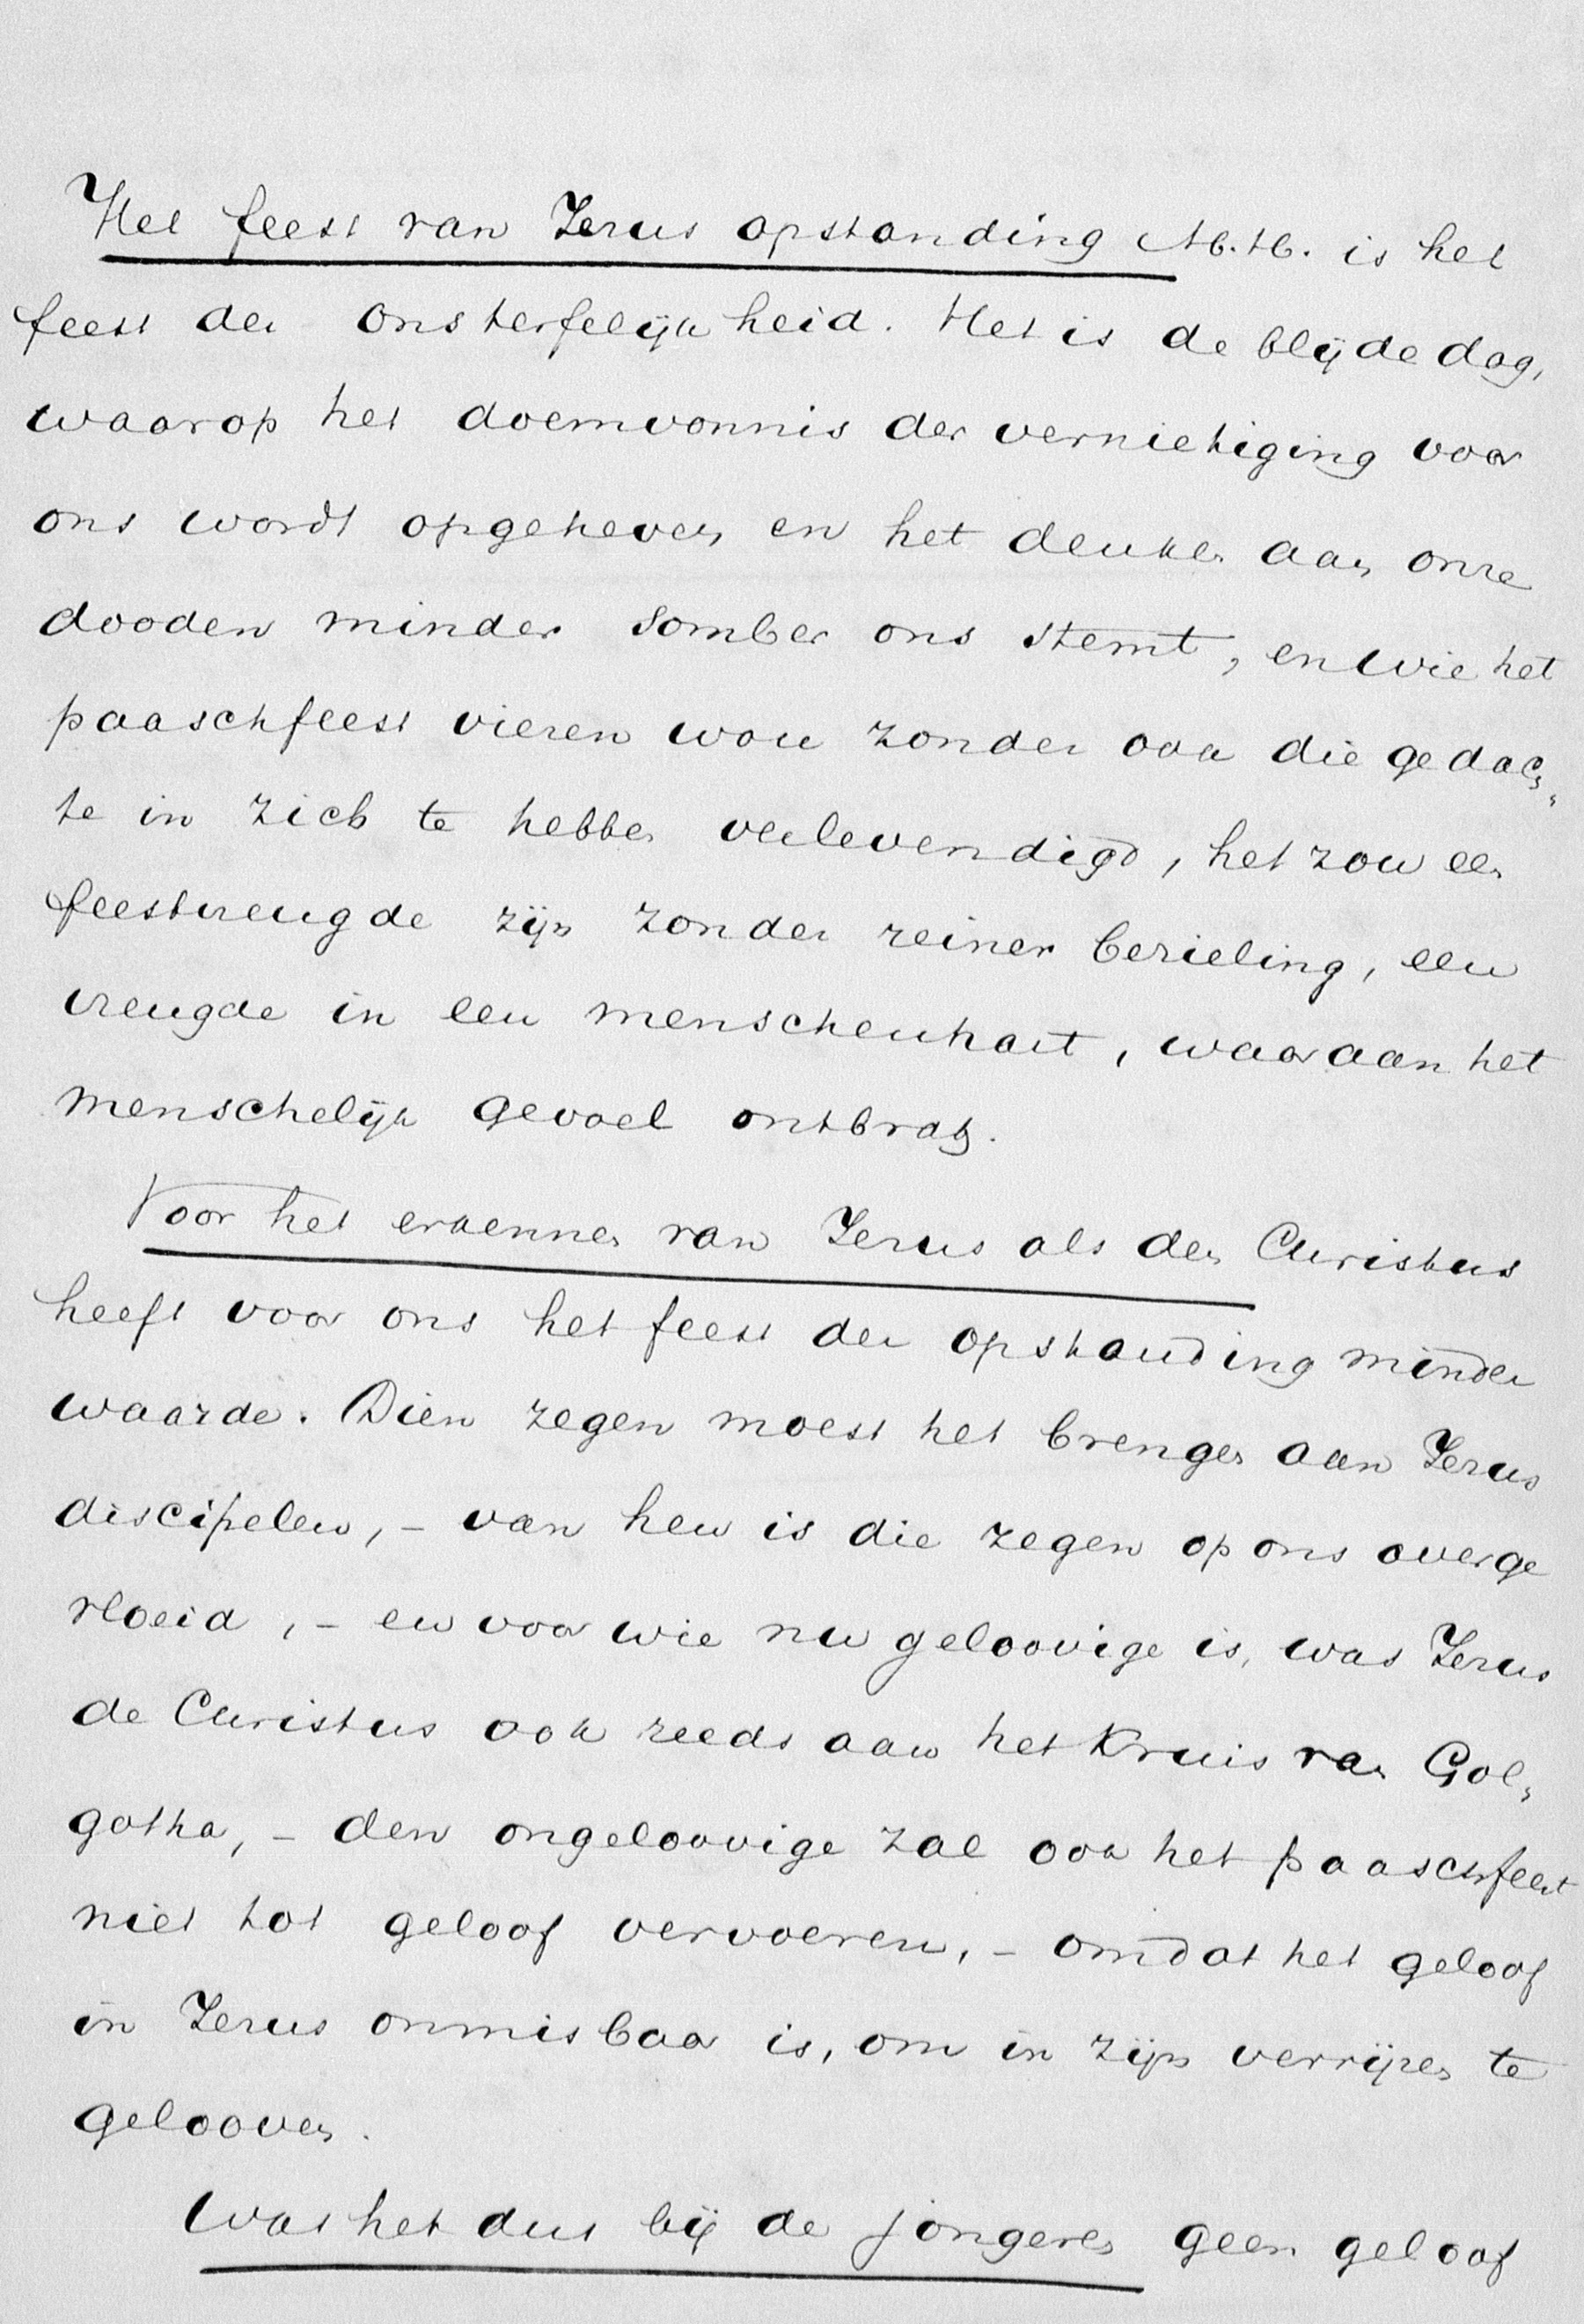 Het feest van Jezus opstanding M.H. is het
feest der onsterfelijkheid. Het is de blijde dag,
waarop het doemvonnis der vernietiging voor
ons wordt opgeheven en het denken aan onze
dooden minder somber ons stemt, en wie het
paaschfeest vieren wou zonder ook die gedach-
te in zich te hebben verlevendigd, het zou een
feestvreugde zijn zonder reiner bezieling, een
vreugde in een menschenhart, waaraan het
menschelijk gevoel ontbrak.
Voor het erkennen van Jezus als den Christus
heeft voor ons het feest der opstanding minder
waarde. Dien zegen moest het brengen aan Jezus
discipelen, - van hen is die zegen op ons overge
vloeid, - en voor wie nu geloovige is, was Jezus
de Christus ook reeds aan het Kruis van Gol-
gotha, - den ongeloovige zal ook het paaschfeest
niet tot geloof vervoeren, - omdat het geloof
in Jezus onmisbaar is, om in zijn verrijzen te
gelooven.
Was het dus bij de jongeren geen geloof